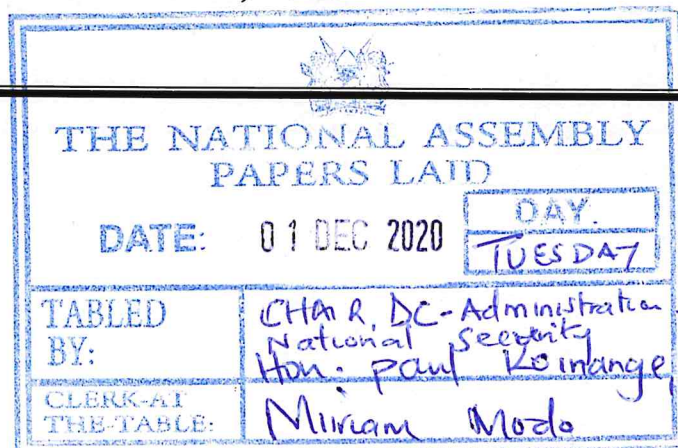 THE NATIONAL ASSEMBLY
PAPERS LAID
DATE: 01 DEC 2020
DAY.
TUESDAY
TABLED BY:
CHAIR, DC-Administration
National Security
Hon. Paul Koinange
CLERK-AT THE-TABLE:
Miriam Modo